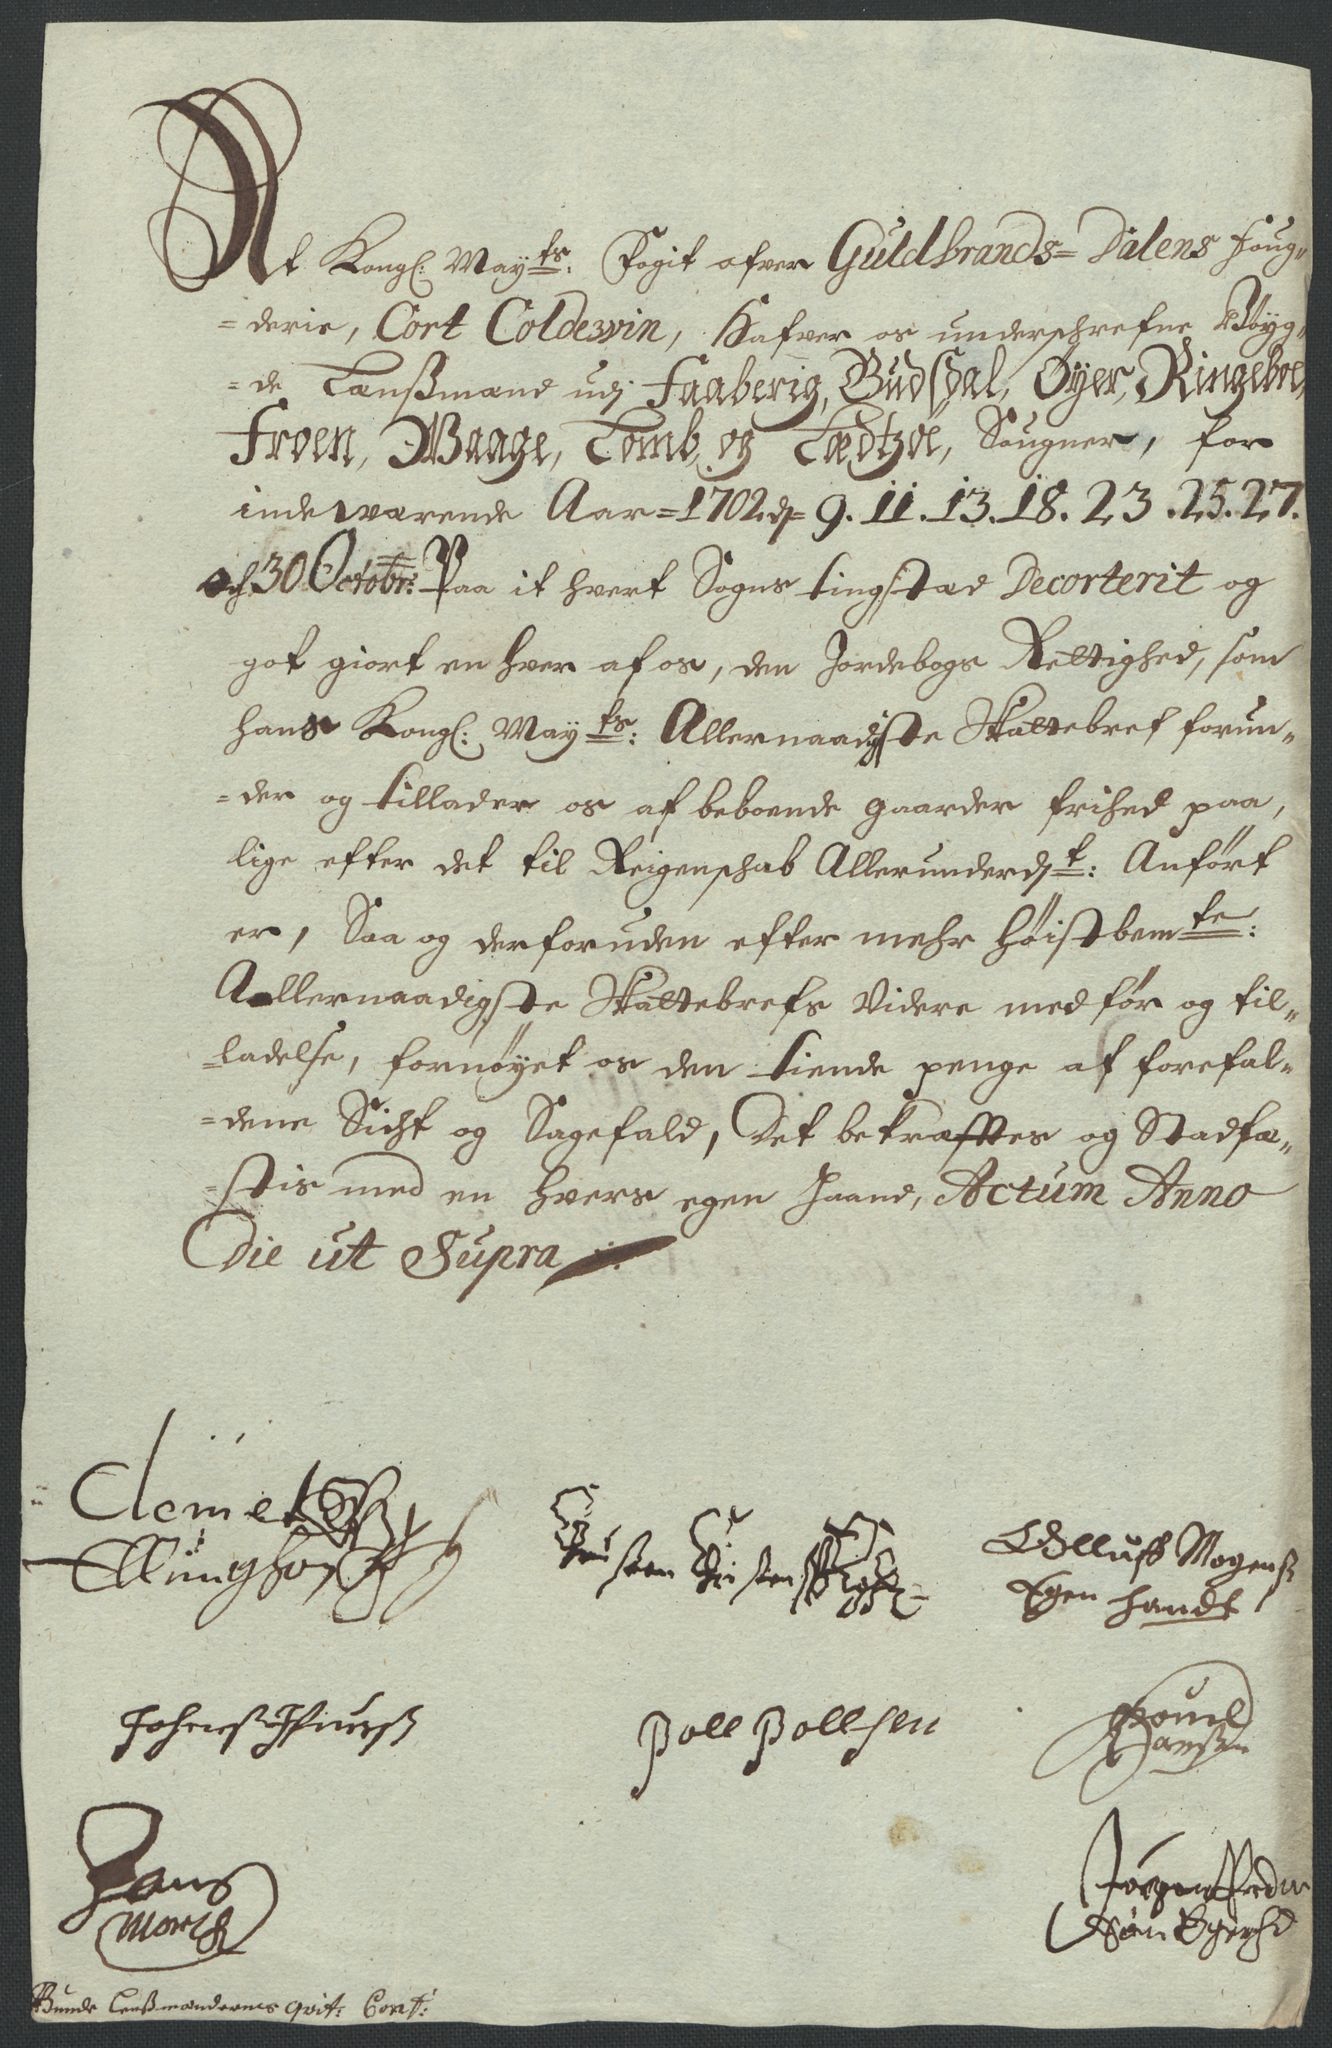 At Kongl: May:ts: Fogit ofver Guldbrands-Dalens foug-
-derie, Cort Coldewin, Hafver os underschrefne Bøyg-
-de Lanßmænd udj Faaberig, Gudsdal, Øyer, Ringeboe,
Froen, Waage, Lomb, og Lædtzøe, Sougner, for
indeværende Aar 1702 d: 9. 11. 13. 18. 23. 25. 27.
och 30 Octobr: Paa it hvert Sogns tingstæd Decorterit og
got giort en hver af os, den Jordebogs Rettighed, som
hans Kongl: May:ts: Allernaadigste Skattebref forun-
-der og tillader os af beboende gaarder frihed paa,
lige efter det til Reigenschab Allerunderd:t: Anført
er, Saa og derforuden efter mehr høistbem:te:
Allernaadigste Skattebrefs Videre medfør og til-
-ladelse, fornøyet os den tiende penge af forefal-
-dene Sicht og Sagefald, Det bekræfftes og Stadfæ-
-stis med en hvers egen Haand, Actum Anno
Die ut Supra
Clemet
Christen Christensen
Olluff Mogenß
Egen handt
Poell Poellsen
Pouel
Hansen
Hans
Morch
Jørgen
Bunde Lenßmændernes qvit: Cont: